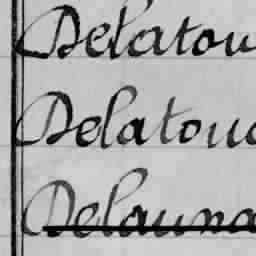 Delatou
Delatouc
Delauna